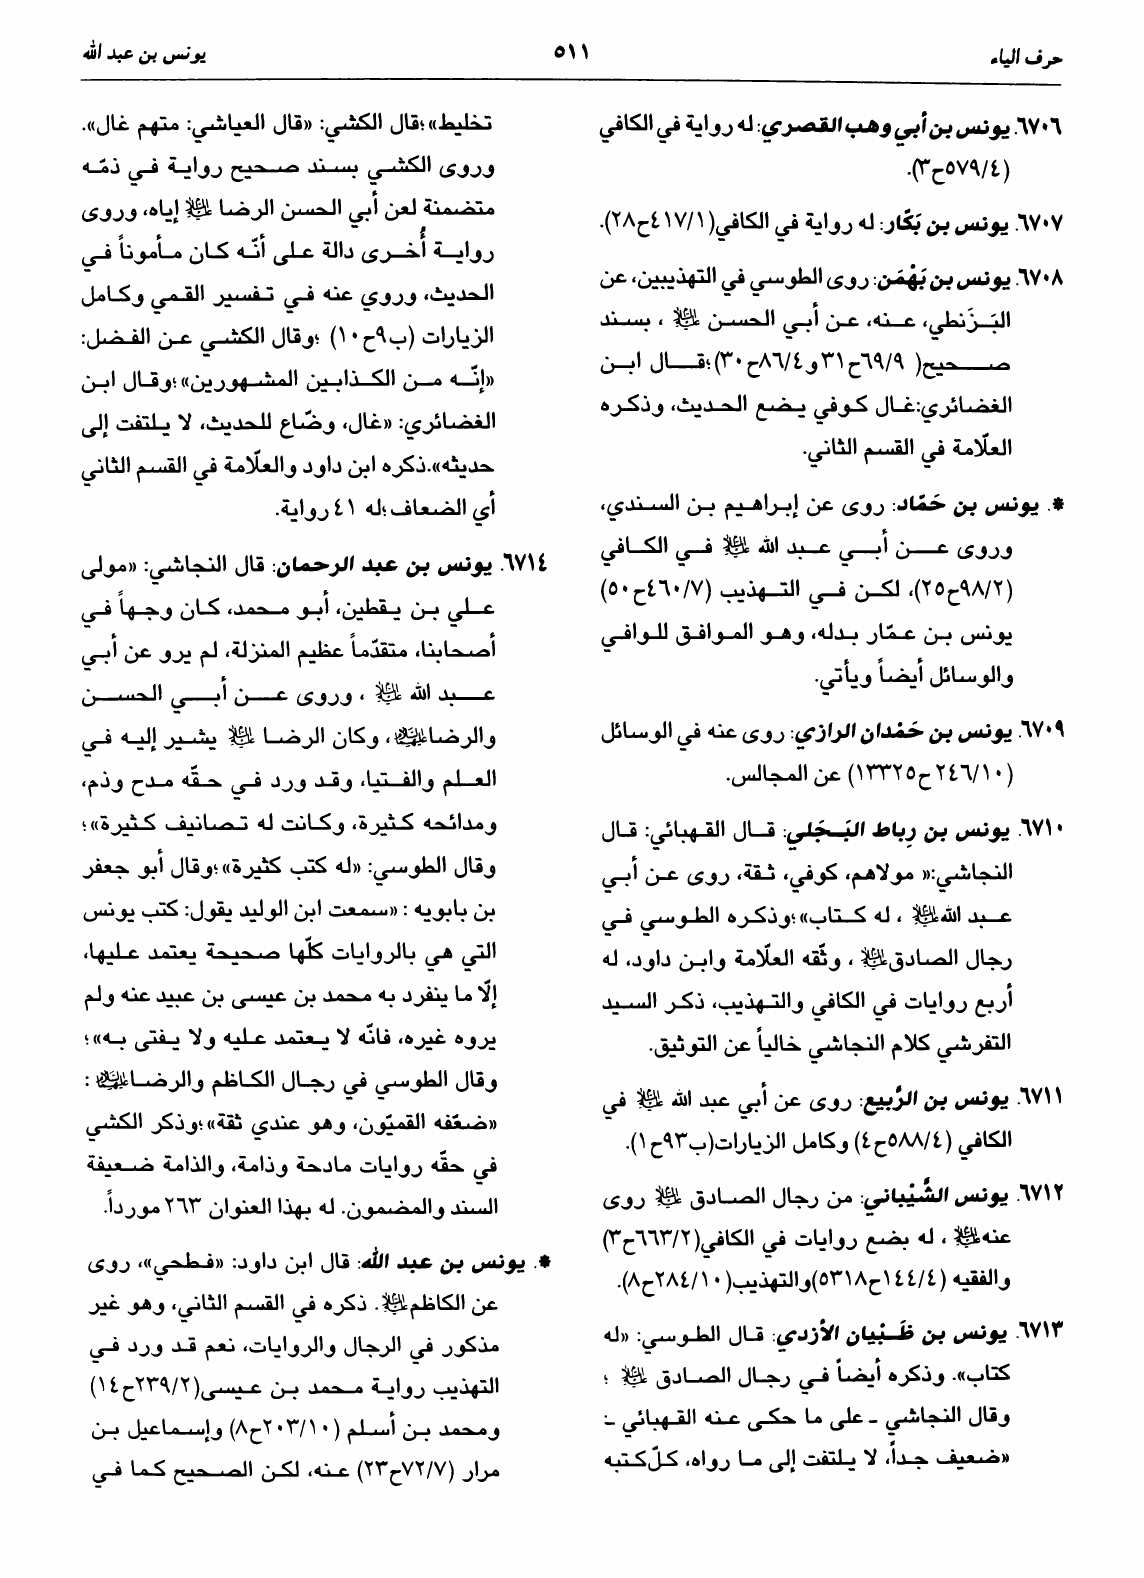 حرف الياء ٥١١ يونس بن عبد الله
٦٧٠٦. يونس بن أبي وهب القصري: له رواية في الكافي
(٥٧٩/٤ح٣).
٦٧٠٧. يونس بن بَكّار: له رواية في الكافي(٤١٧/١ح٢٨).
٦٧٠٨. يونس بن بَهْمَن: روى الطوسي في التهذيبين، عن
البَـزَنطي، عـنه، عـن أبـي الحـسن ﷺ ، بسـند
صـــحيح( ٦٩/٩ح٣١ و٨٦/٤ح٣٠)؛قــال ابـن
الغضائري:غـال كـوفي يـضع الحـديث، وذكـره
العلّامة في القسم الثاني.
*. يونس بـن حَمّاد: روى عن إبـراهـيم بـن السـندي،
وروى عـــن أبـــي عـــبد الله ﷺ فـــي الكـــافي
(٩٨/٢ح٢٥)، لكـن فـي التـهذيب (٤٦٠/٧ح٥٠)
يونس بـن عـمّار بـدله، وهـو المـوافـق للـوافي
والوسائل أيضاً ويأتي.
٦٧٠٩. يونس بن حَمْدان الرازي: روى عنه في الوسائل
(٢٤٦/١٠ح١٣٣٢٥) عن المجالس.
٦٧١٠. يونس بن رِباط البَـجَلي: قـال القـهبائي: قـال
النجاشي:« مولاهم، كوفي، ثـقة، روى عـن أبـي
عـبد الله ﷺ ، له كـتاب»؛وذكـره الطـوسي فـي
رجال الصادق ﷺ ، وثّقه العلّامة وابـن داود، له
أربع روايات في الكافي والتـهذيب، ذكـر السـيد
التفرشي كلام النجاشي خالياً عن التوثيق.
٦٧١١. يونس بن الرَّبيع: روى عن أبي عبد الله ﷺ في
الكافي (٥٨٨/٤ح٤) وكامل الزيارات(ب٩٣ح١).
٦٧١٢. يونس الشَّيْباني: من رجال الصـادق ﷺ روى
عنه ﷺ ، له بضع روايات في الكافي(٦٦٣/٢ح٣)
والفقيه (١٤٤/٤ح٥٣١٨)والتهذيب(٢٨٤/١٠ح٨).
٦٧١٣. يونس بن ظَـبْيان الأزدي: قـال الطـوسي: «له
كتاب». وذكره أيضاً فـي رجـال الصـادق ﷺ ؛
وقال النجاشي ـ على ما حكى عنه القـهبائي ـ:
«ضعيف جـداً، لا يـلتفت إلى مـا رواه، كـلّ كـتبه
تخليط»؛قال الكشي: «قال العياشي: متهم غال».
وروى الكشي بسند صـحيح روايـة فـي ذمّـه
متضمنة لعن أبي الحسن الرضا ﷺ إياه، وروى
روايـة أُخـرى دالة عـلى أنّـه كـان مـأموناً فـي
الحديث، وروي عنه في تـفسير القـمي وكـامل
الزيارات (ب٩ح١٠) ؛وقال الكشـي عـن الفـضل:
«إنّـه مـن الكـذابـين المشـهورين»؛وقـال ابـن
الغضائري: «غال، وضّاع للحديث، لا يـلتفت إلى
حديثه».ذكره ابن داود والعلّامة في القسم الثاني
أي الضعاف؛له ٤١ رواية.
٦٧١٤. يونس بن عبد الرحمان: قال النجاشي: «مولى
عـلي بـن يـقطين، أبـو مـحمد، كـان وجـهاً فـي
أصحابنا، متقدّماً عظيم المنزلة، لم يرو عن أبـي
عـــبد الله ﷺ ، وروى عـــن أبـــي الحـســن
والرضا ﷺ، وكان الرضـا ﷺ يشـير إليـه فـي
العـلم والفـتيا، وقـد ورد فـي حـقّه مـدح وذم،
ومدائحه كـثيرة، وكـانت له تـصانيف كـثيرة»؛
وقال الطوسي: «له كتب كثيرة»؛وقال أبو جعفر
بن بابويه : «سمعت ابن الوليد يقول: كتب يونس
التي هي بالروايات كلّها صحيحة يعتمد عـليها،
إلّا ما ينفرد به محمد بن عيسى بن عبيد عنه ولم
يروه غيره، فانّه لا يـعتمد عـليه ولا يـفتى بـه»؛
وقال الطوسي في رجـال الكـاظم والرضـا ﷺ :
«ضعّفه القميّون، وهو عندي ثقة»؛وذكر الكشي
في حقّه روايات مادحة وذامة، والذامة ضـعيفة
السند والمضمون. له بهذا العنوان ٢٦٣ مورداً.
*. يونس بن عبد الله: قال ابن داود: «فـطحي»، روى
عن الكاظم ﷺ. ذكره في القسم الثاني، وهو غير
مذكور في الرجال والروايات، نعم قـد ورد فـي
التهذيب روايـة مـحمد بـن عـيسى(٢٣٩/٢ح١٤)
ومحمد بـن أسـلم (٢٠٣/١٠ح٨) وإسـماعيل بـن
مرار (٧٢/٧ح٢٣) عنه، لكن الصـحيح كـما فـي